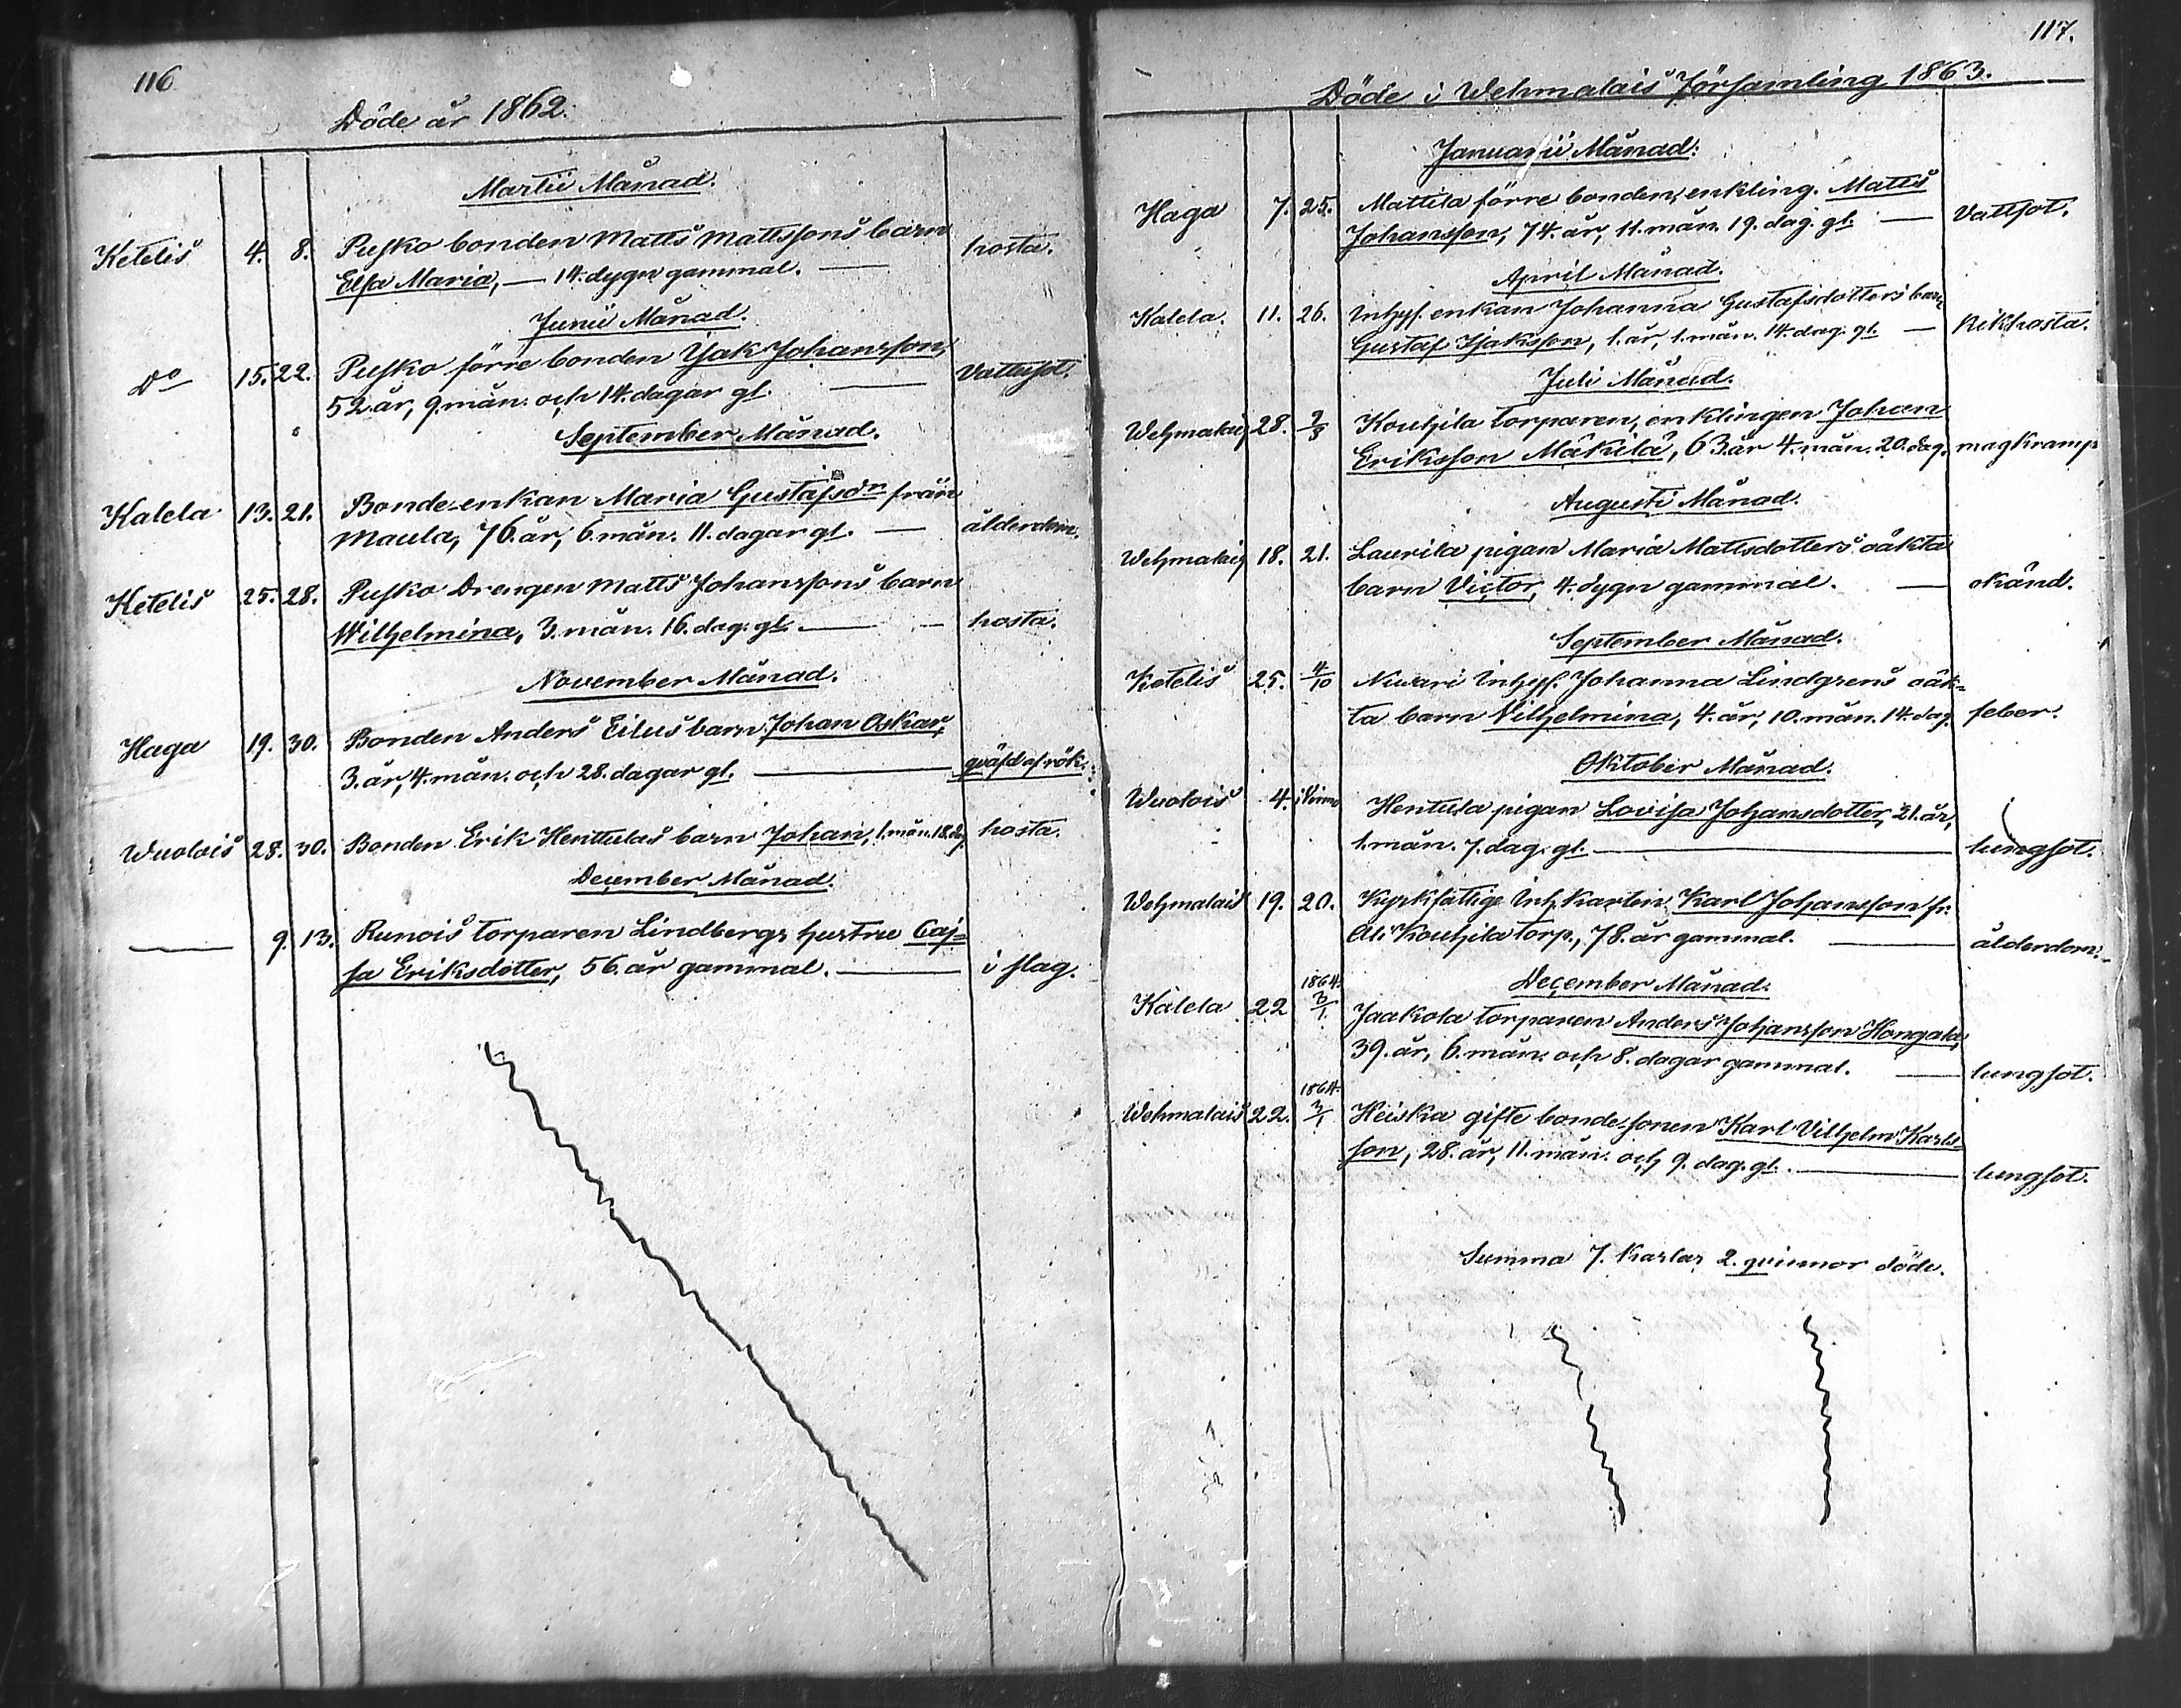 116
Döde år 1862.
Martii Månad.
Ketelis 4. 8. Pusko bonden Matts Mattssons barn hosta.
Elsa Maria, — 14. dygn gammal. —
Junii Månad.
Do 15. 22. Pusko förre bonden Isak Johansson, Vattusot.
52. år, 9. mån. och 14. dagar gl. —
September Månad.
Kalela 13. 21. Bonde-enkan Maria Gustafsdr från
Maula, 76. år, 6. mån. 11. dagar gl. — ålderdom.
Ketelis 25. 28. Pusko Drengen Matts Johanssons barn
Wilhelmina, 3. mån. 16. dag. gl. — hosta.
November Månad.
Haga 19. 30. Bonden Anders Eilus barn Johan Oskar,
3. år, 4. mån. och 28. dagar gl. — qväfd af rök.
Wuolois 28. 30. Bonden Erik Henttulas barn Johan, 1. mån. 18. dag. hosta.
December Månad.
— 9. 13. Runois torparen Lindbergs hustru Caj=
sa Eriksdotter, 56. år gammal. — i slag.
117.
Döde i Wehmalais Församling 1863.
Januarii Månad.
Haga 7. 25. Mattila förre bonden, enkling. Matts
Johansson, 74. år, 11. mån. 19. dag. gl. — Vattsot.
April Månad.
Kalela. 11. 26. Inhys. enkan Johanna Gustafsdotters barn
Gustaf Isaksson, 1. år, 1. mån. 14. dag. gl. — Kikhosta.
Juli Månad.
Wehmalais 28. Kouhila torparen, enklingen Johan
Eriksson Mäkilä, 63. år 4. mån. 20. dag. magkramp
Augusti Månad.
Wehmalais 18. 21. Laurila pigan Maria Mattsdotters oäkta
barn Victor, 4. dygn gammal. — okänd.
September Månad.
Ketelis 25. 4/10 Inhys. Johanna Lindgrens oäk=
ta barn Vilhelmina, 4. år, 10. mån. 14. dag. feber.
Oktober Månad.
Wuolois 4. Hentula pigan Lovisa Johansdotter, 21. år,
1. mån. 7. dag. gl. — lungsot.
Wehmalais 19. 20. Kyrkfattige Inh. karlen Karl Johansson fr.
Ali Kouhila torp., 78. år gammal. — ålderdom.
December Månad.
Kalela 22 1864. 3/1. Jaakola torparen Anders Johansson Hongala,
39. år, 6. mån. och 8. dagar gammal. — lungsot.
Wehmalais 22. 1864. 3/1 Heiska gifte bondesonen Karl Vilhelm Karls=
son, 28. år, 11. mån. och 9. dag. gl. — lungsot.
Summa 7. karlar 2. qvinnor döde.